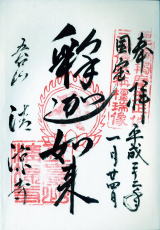 奉拝
平成二十三年
一月廿四日
国宝
釈迦如来
五台山
清凉寺